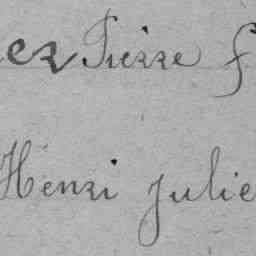 ez Pierre f
Henri Julie